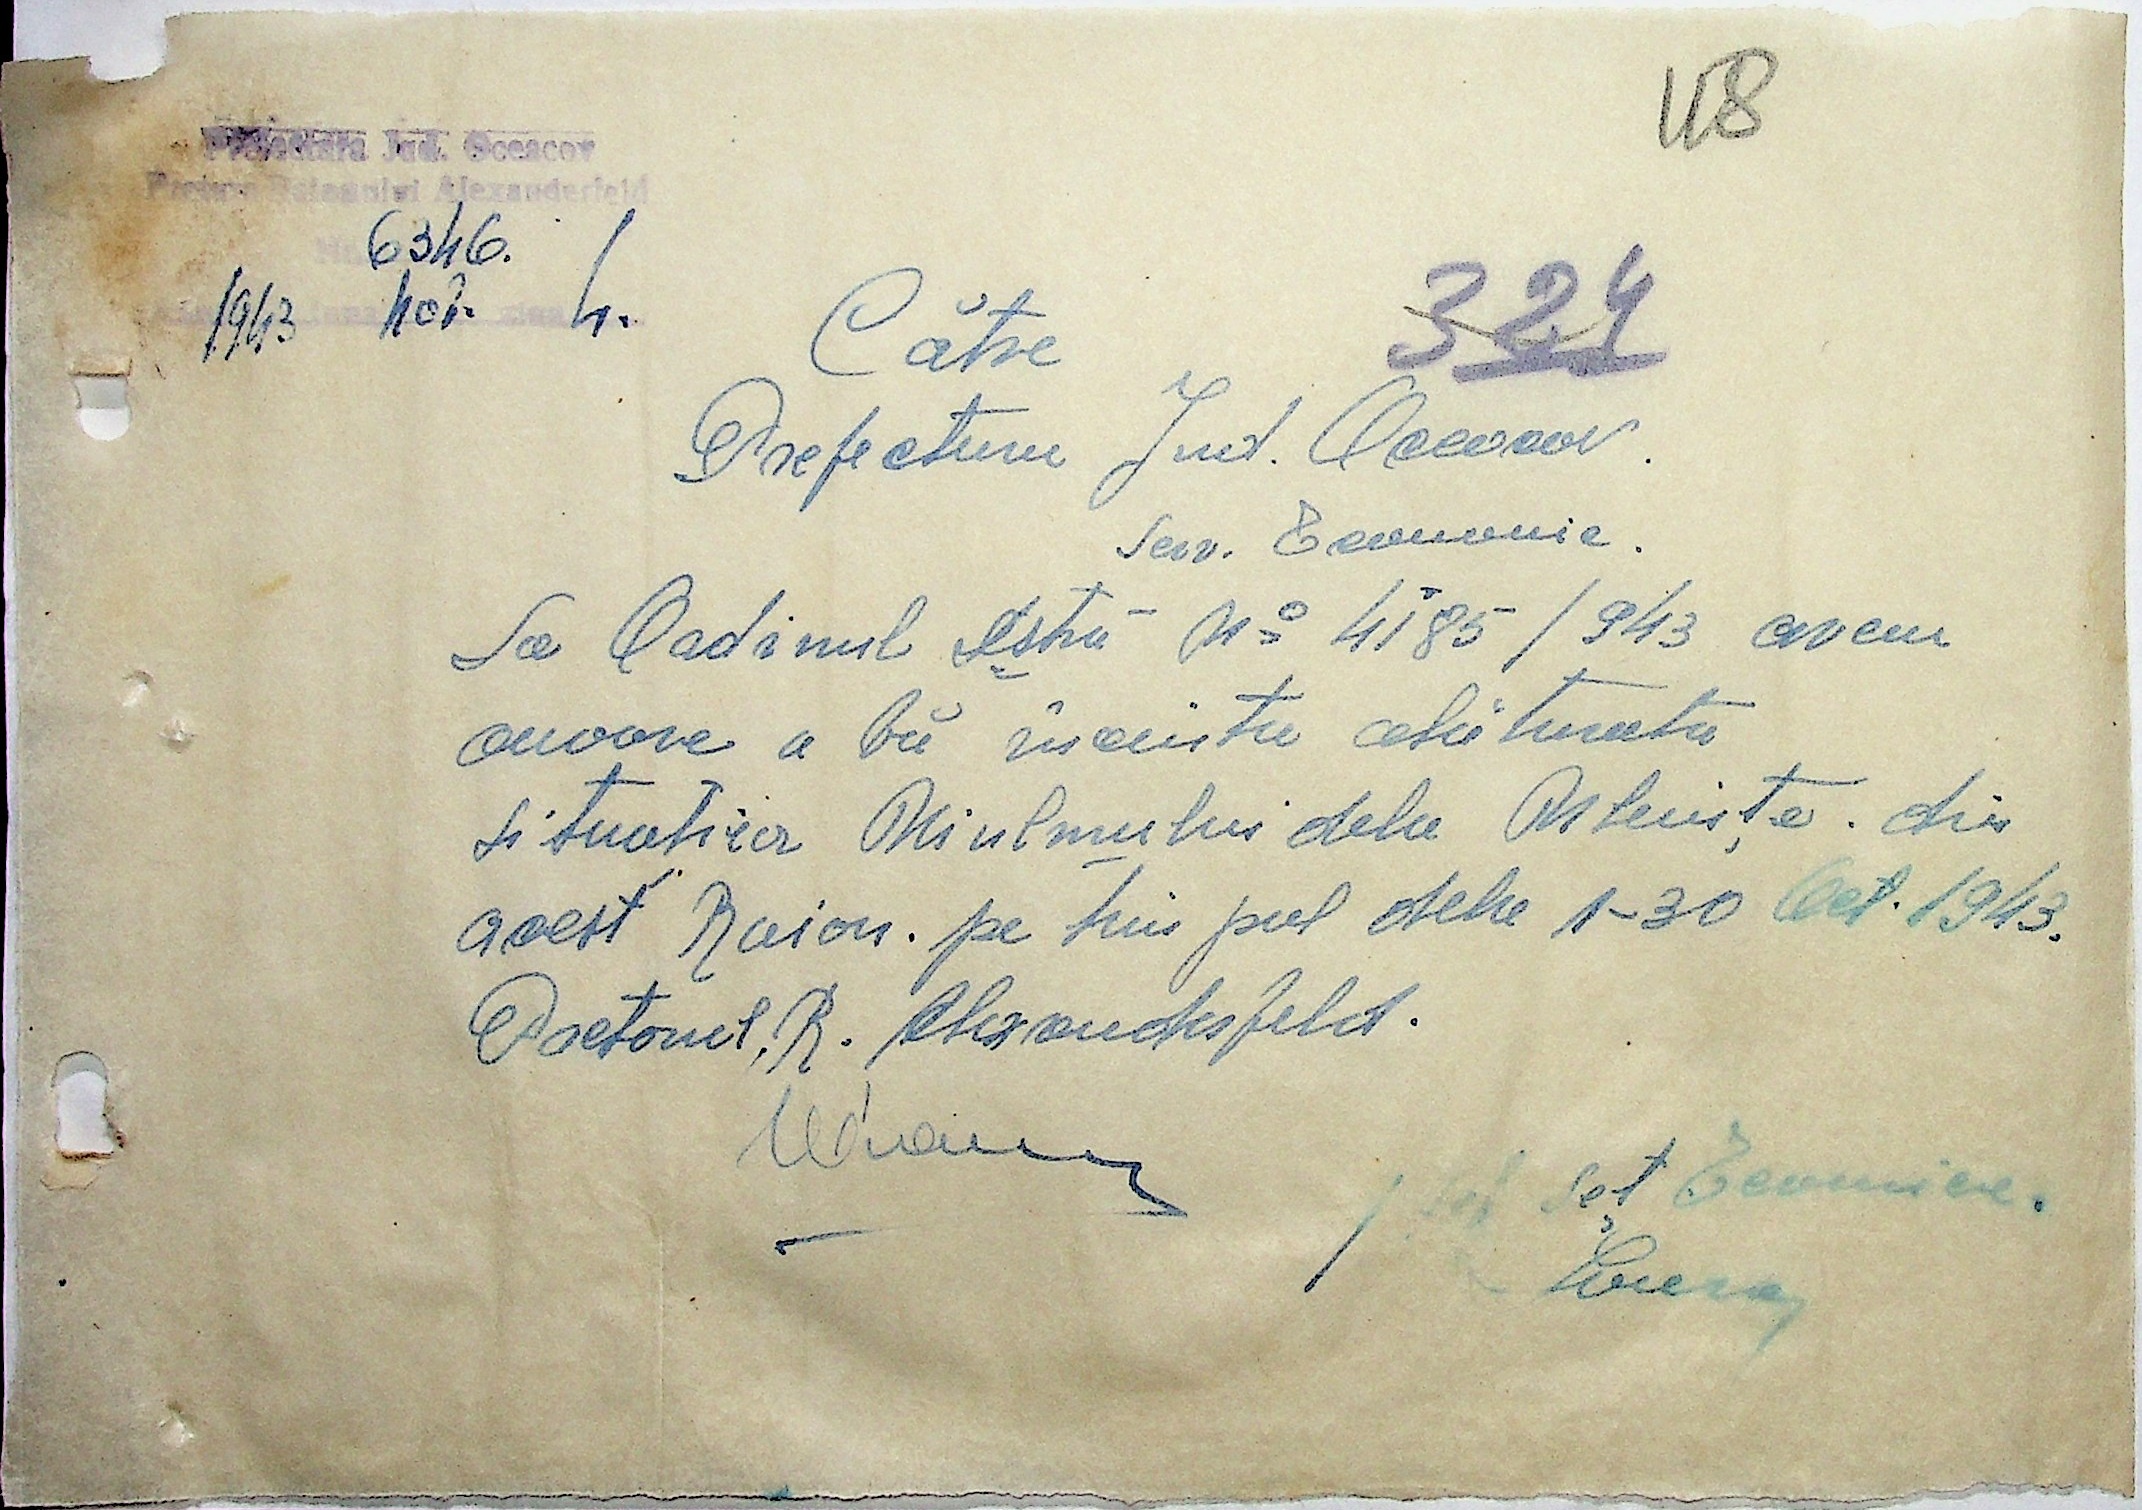 118
Prefectura Jud. Oceacov
Pretura Raionului Alexanderfeld
6346.
1943 Nov. 4.
324
Către
Prefectura Jud. Oceacov.
Serv. Economic.
La Ordinul Dstră No 4185/943 avem
onoare a Vă înainta alăturata
situația dela din
acest Raion. pe timpul dela 1-30 Oct. 1943.
Pretorul, R. Alexanderfeld.
Șef Economic.